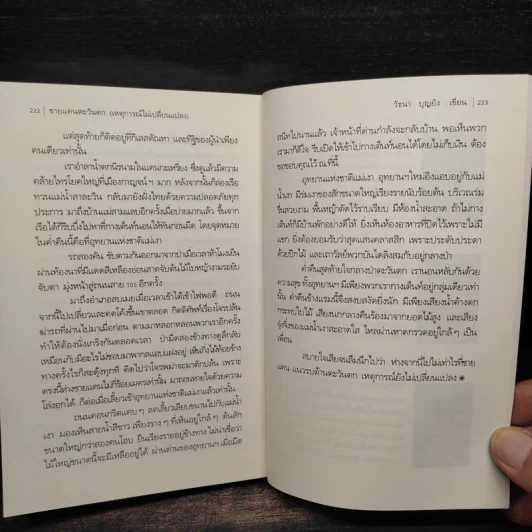 222 | ชายแดนตะวันตก (เหตุการณ์ไม่เปลี่ยนแปลง)
แต่สุดท้ายก็ติดอยู่ที่กิเลสตัณหา และทิฐิของผู้นำเพียง
คนเดียวเท่านั้น
เราอำลาน้ำตกนิรนามในแดนกะเหรี่ยง ซึ่งดูแล้วมีความ
คล้ายไทรโยคใหญ่ที่เมืองกาญจน์ฯ มาก หลังจากนั้นก็ล่องเรือ
ทวนแม่น้ำสาละวิน กลับมายังฝั่งไทยด้วยความปลอดภัยทุก
ประการ มาถึงบ้านแม่สามแลบอีกครั้งเมื่อบ่ายมากแล้ว ขึ้นจาก
เรือได้ก็รีบบึ่งไปหาที่กางเต็นท์นอนให้ทันก่อนมืด โดยจุดหมาย
ในค่ำคืนนี้คือที่อุทยานแห่งชาติแม่เงา
รถสองคัน ขับตามกันออกมาจากป่าเมื่อเวลาห้าโมงเย็น
ผ่านท้องนาที่มีแดดสีเหลืองอ่อนสาดจับต้นไม้ใบหญ้างามระยับ
จับตา มุ่งหน้าสู่ถนนสาย 105 อีกครั้ง
มาถึงอำเภอสบเมยเมื่อเวลาเข้าไต้เข้าไฟพอดี ถนน
จากนี้ไปเปลี่ยวและคดโค้งขึ้นเขาตลอด กิตติศัพท์เรื่องโจรปล้น
ฆ่ารถที่ผ่านไปมาเมื่อก่อน ตามมาหลอกหลอนพวกเราอีกครั้ง
ทำให้ต้องนั่งเกร็งกันตลอดเวลา ป่ามืดสองข้างทางดูลึกลับ
เหมือนกับมีอะไรไม่ชอบมาพากลแอบแฝงอยู่ เห็นกิ่งไม้ห้อยข้าง
ทางครั้งไรก็สะดุ้งทุกที คิดไปว่าโจรพม่าจะมาดักปล้น เพราะ
ตรงนี้ห่างชายแดนไม่กี่ร้อยเมตรเท่านั้น มาถอนหายใจด้วยความ
โล่งอกได้ ก็ต่อเมื่อเลี้ยวเข้าอุทยานแห่งชาติแม่เงาแล้วเท่านั้น
ถนนคอนกรีตแคบ ๆ ลดเลี้ยวเลียบขนานไปกับแม่น้ำ
เงา มองเห็นสายน้ำสีขาว เพียงราง ๆ ที่เห็นอยู่ใกล้ๆ ต้นสัก
ขนาดใหญ่กว่าสองคนโอบ ยืนเรียงรายอยู่ข้างทาง ไม่น่าเชื่อว่า
ไม้ใหญ่ขนาดนี้จะมีเหลืออยู่ได้ ผ่านด่านของอุทยานฯ เมื่อมืด
วัธนา บุญยัง : เขียน | 223
สนิทไปนานแล้ว เจ้าหน้าที่ด่านกำลังจะกลับบ้าน พอเห็นพวก
เรามาก็ดีใจ รีบเปิดให้เข้าไปกางเต็นท์นอนได้โดยไม่เก็บเงิน ต้อง
ขอขอบคุณไว้ ณ ที่นี้
อุทยานแห่งชาติแม่เงา อุทยานฯใหม่อิงแอบอยู่กับแม่
น้ำเงา มีร่มเงาของสักขนาดใหญ่เรียงรายนับร้อยต้น บริเวณร่ม
รื่นสวยงาม พื้นหญ้าตัดไว้ราบเรียบ มีห้องน้ำสะอาด ถ้าไม่กาง
เต็นท์ก็มีบ้านพักอย่างดีให้ ยิ่งเห็นห้องอาหารที่ปิดไว้เพราะไม่มี
แขก ยิ่งต้องยอมรับว่าสุดแสนคลาสสิก เพราะประดับประดา
ด้วยปีกไม้ และเถาวัลย์พวกบันไดลิงสมกับอยู่กลางป่า
ค่ำคืนสุดท้ายใจกลางป่าตะวันตก เรานอนหลับกันด้วย
ความสุข ทั้งอุทยานฯ มีเพียงพวกเรากางเต็นท์อยู่กลุ่มเดียวเท่า
นั้น ค่ำคืนข้างแรมนี้จึงสงบสงัดยิ่งนัก มีเพียงเสียงน้ำค้างตก
กระทบใบไม้ เสียงนกกลางคืนร้องมาจากยอดไม้สูง และเสียง
จู้จี้ของแม่น้ำเงาสะอาดใส ไหลผ่านหาดกรวดอยู่ใกล้ๆ เป็น
เพื่อน
สบายใจเสียจนลืมนึกไปว่า ห่างจากนี้ไปไม่เท่าไรที่ชาย
แดน แนวรบด้านตะวันตก เหตุการณ์ยังไม่เปลี่ยนแปลง